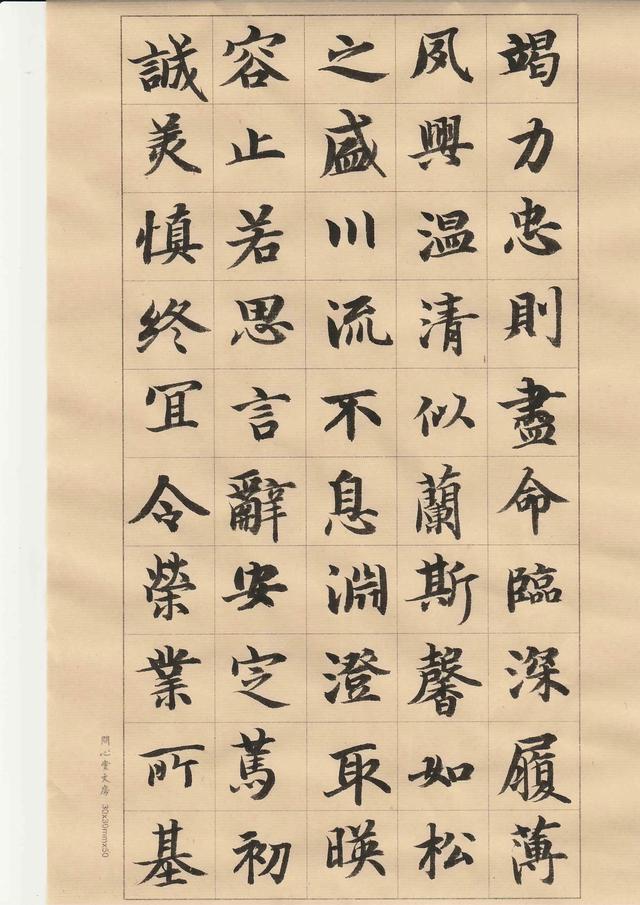 竭力忠則盡命臨深履薄
夙興温清似蘭斯馨如松
之盛川流不息淵澄取暎
容止若思言辭安定篤初
誠美慎終冝令榮業所基
問心堂文房 30x30mmx50